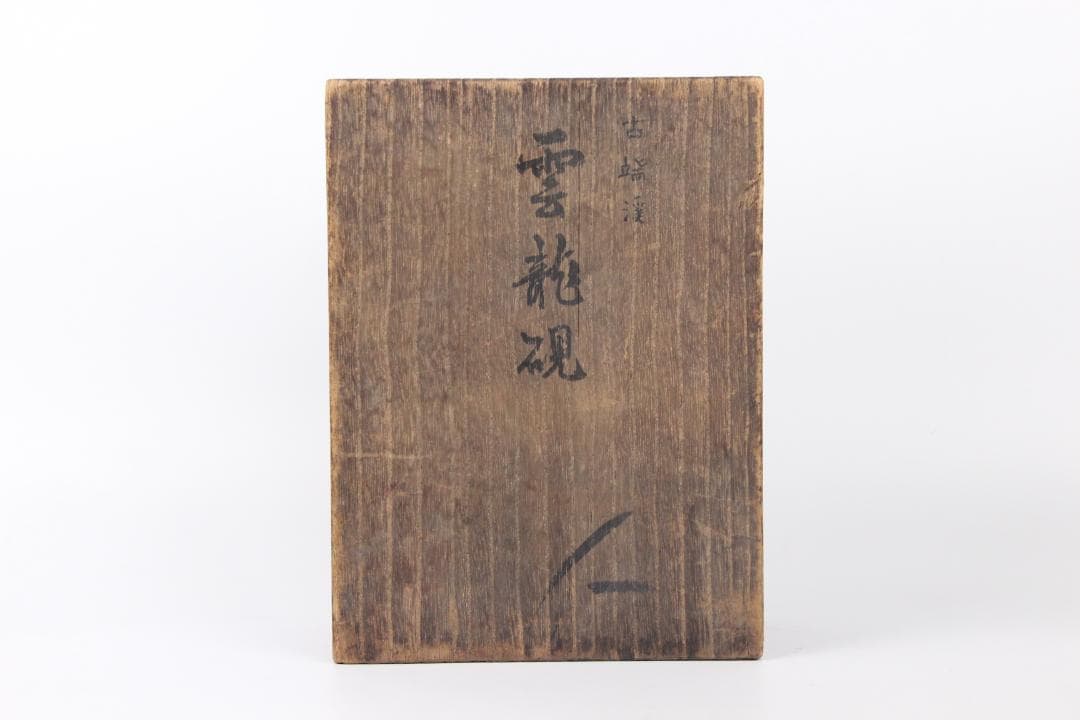 古端渓
雲龍硯